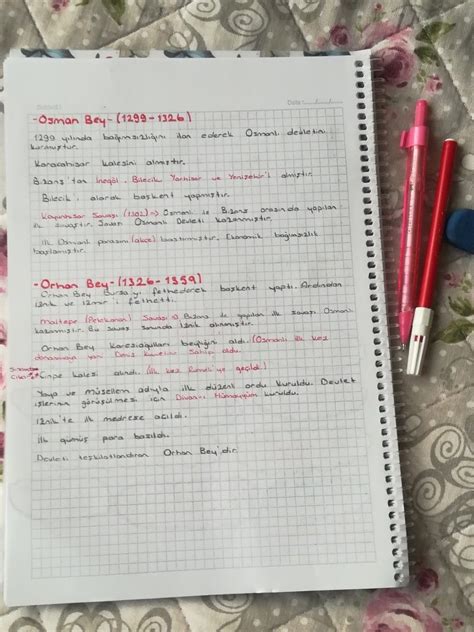 -Osman Bey- (1299-1326)
1299 yılında bağımsızlığını ilan ederek Osmanlı devletini
kurmuştur.
Karacahisar kalesini almıştır.
Bizans'tan İnegöl, Bilecik, Yarhisar ve Yenişehir'i almıştır.
Bilecik'i alarak başkent yapmıştır.
Koyunhisar Savaşı (1302)=> Osmanlı ile Bizans arasında yapılan
ilk savaştır. Savaşı Osmanlı Devleti kazanmıştır.
İlk Osmanlı parasını (akçe) bastırmıştır. Ekonomik bağımsızlık
başlamıştır.
-Orhan Bey- (1326-1359)
Orhan Bey Bursa'yı fethederek başkent yaptı. Ardından
İznik ve İzmir'i fethetti.
Maltepe (Pelekanon) Savaşı Bizans ile yapılan ilk savaşı Osmanlı
kazanmıştır. Bu savaş sonunda İznik alınmıştır.
Orhan Bey Karesioğulları beyliğini aldı. (Osmanlı ilk kez
donanmaya yani Deniz Kuvvetleri Sahip oldu.
Çimpe kalesi alındı. (İlk kez Rumeli'ye geçildi)
Yaya ve Müsellem adıyla ilk düzenli ordu kuruldu. Devlet
işlerinin görüşülmesi için Divan-ı Hümayun kuruldu.
İznik'te ilk medrese açıldı.
İlk gümüş para basıldı.
Devleti teşkilatlandıran Orhan Bey'dir.